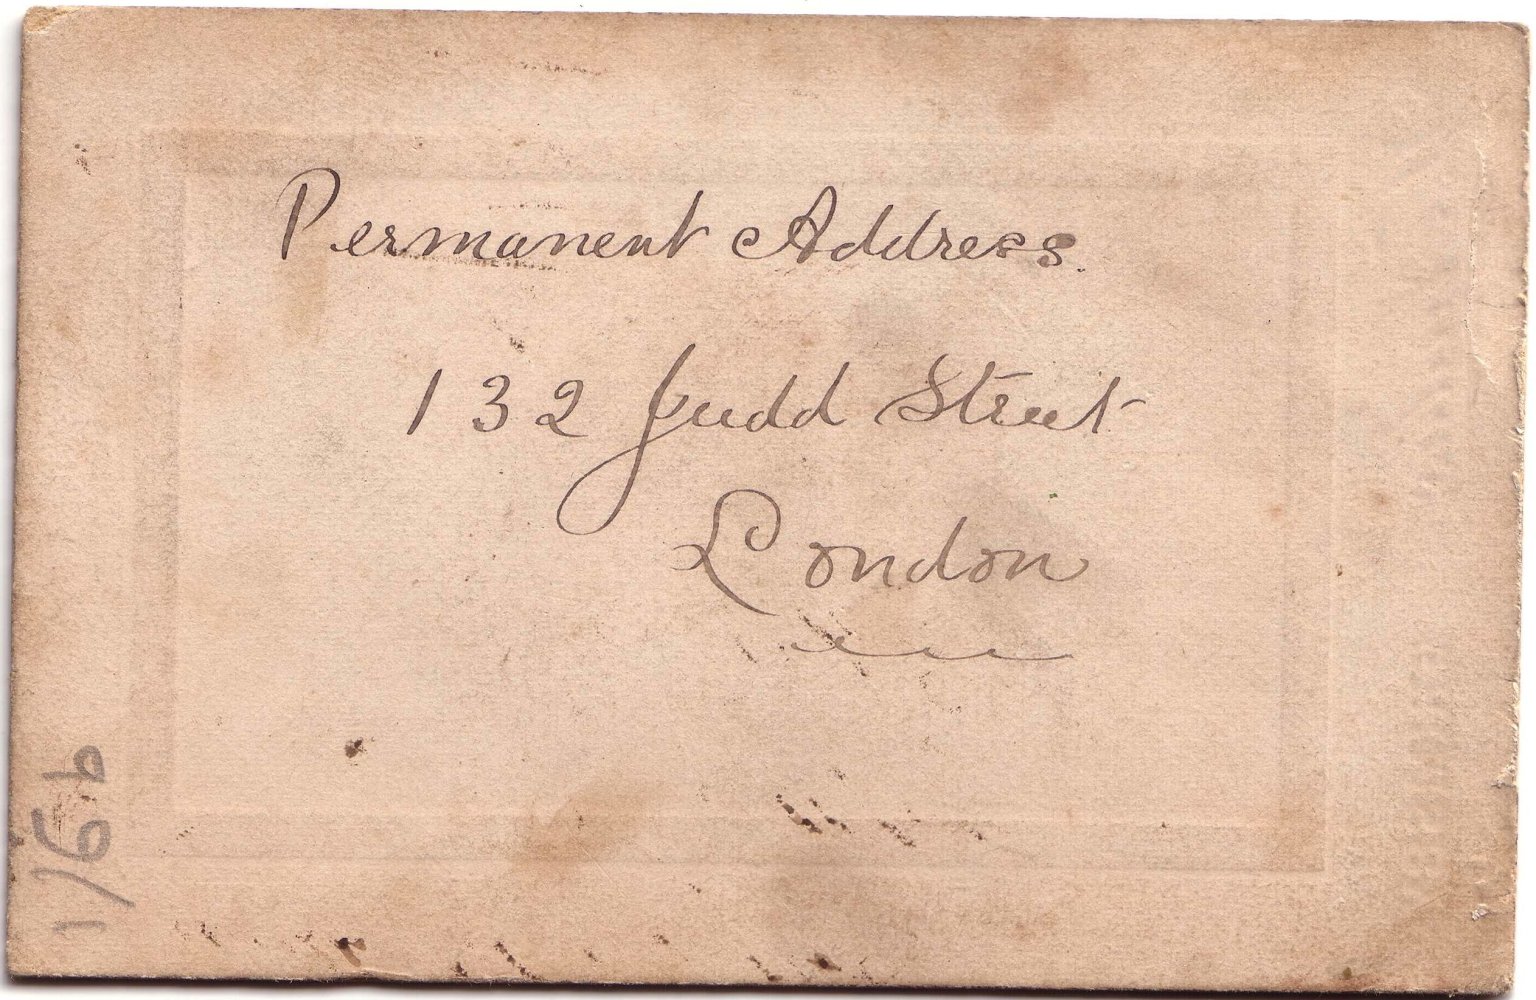 Permanent Address.
132 Judd Street
London
1/6